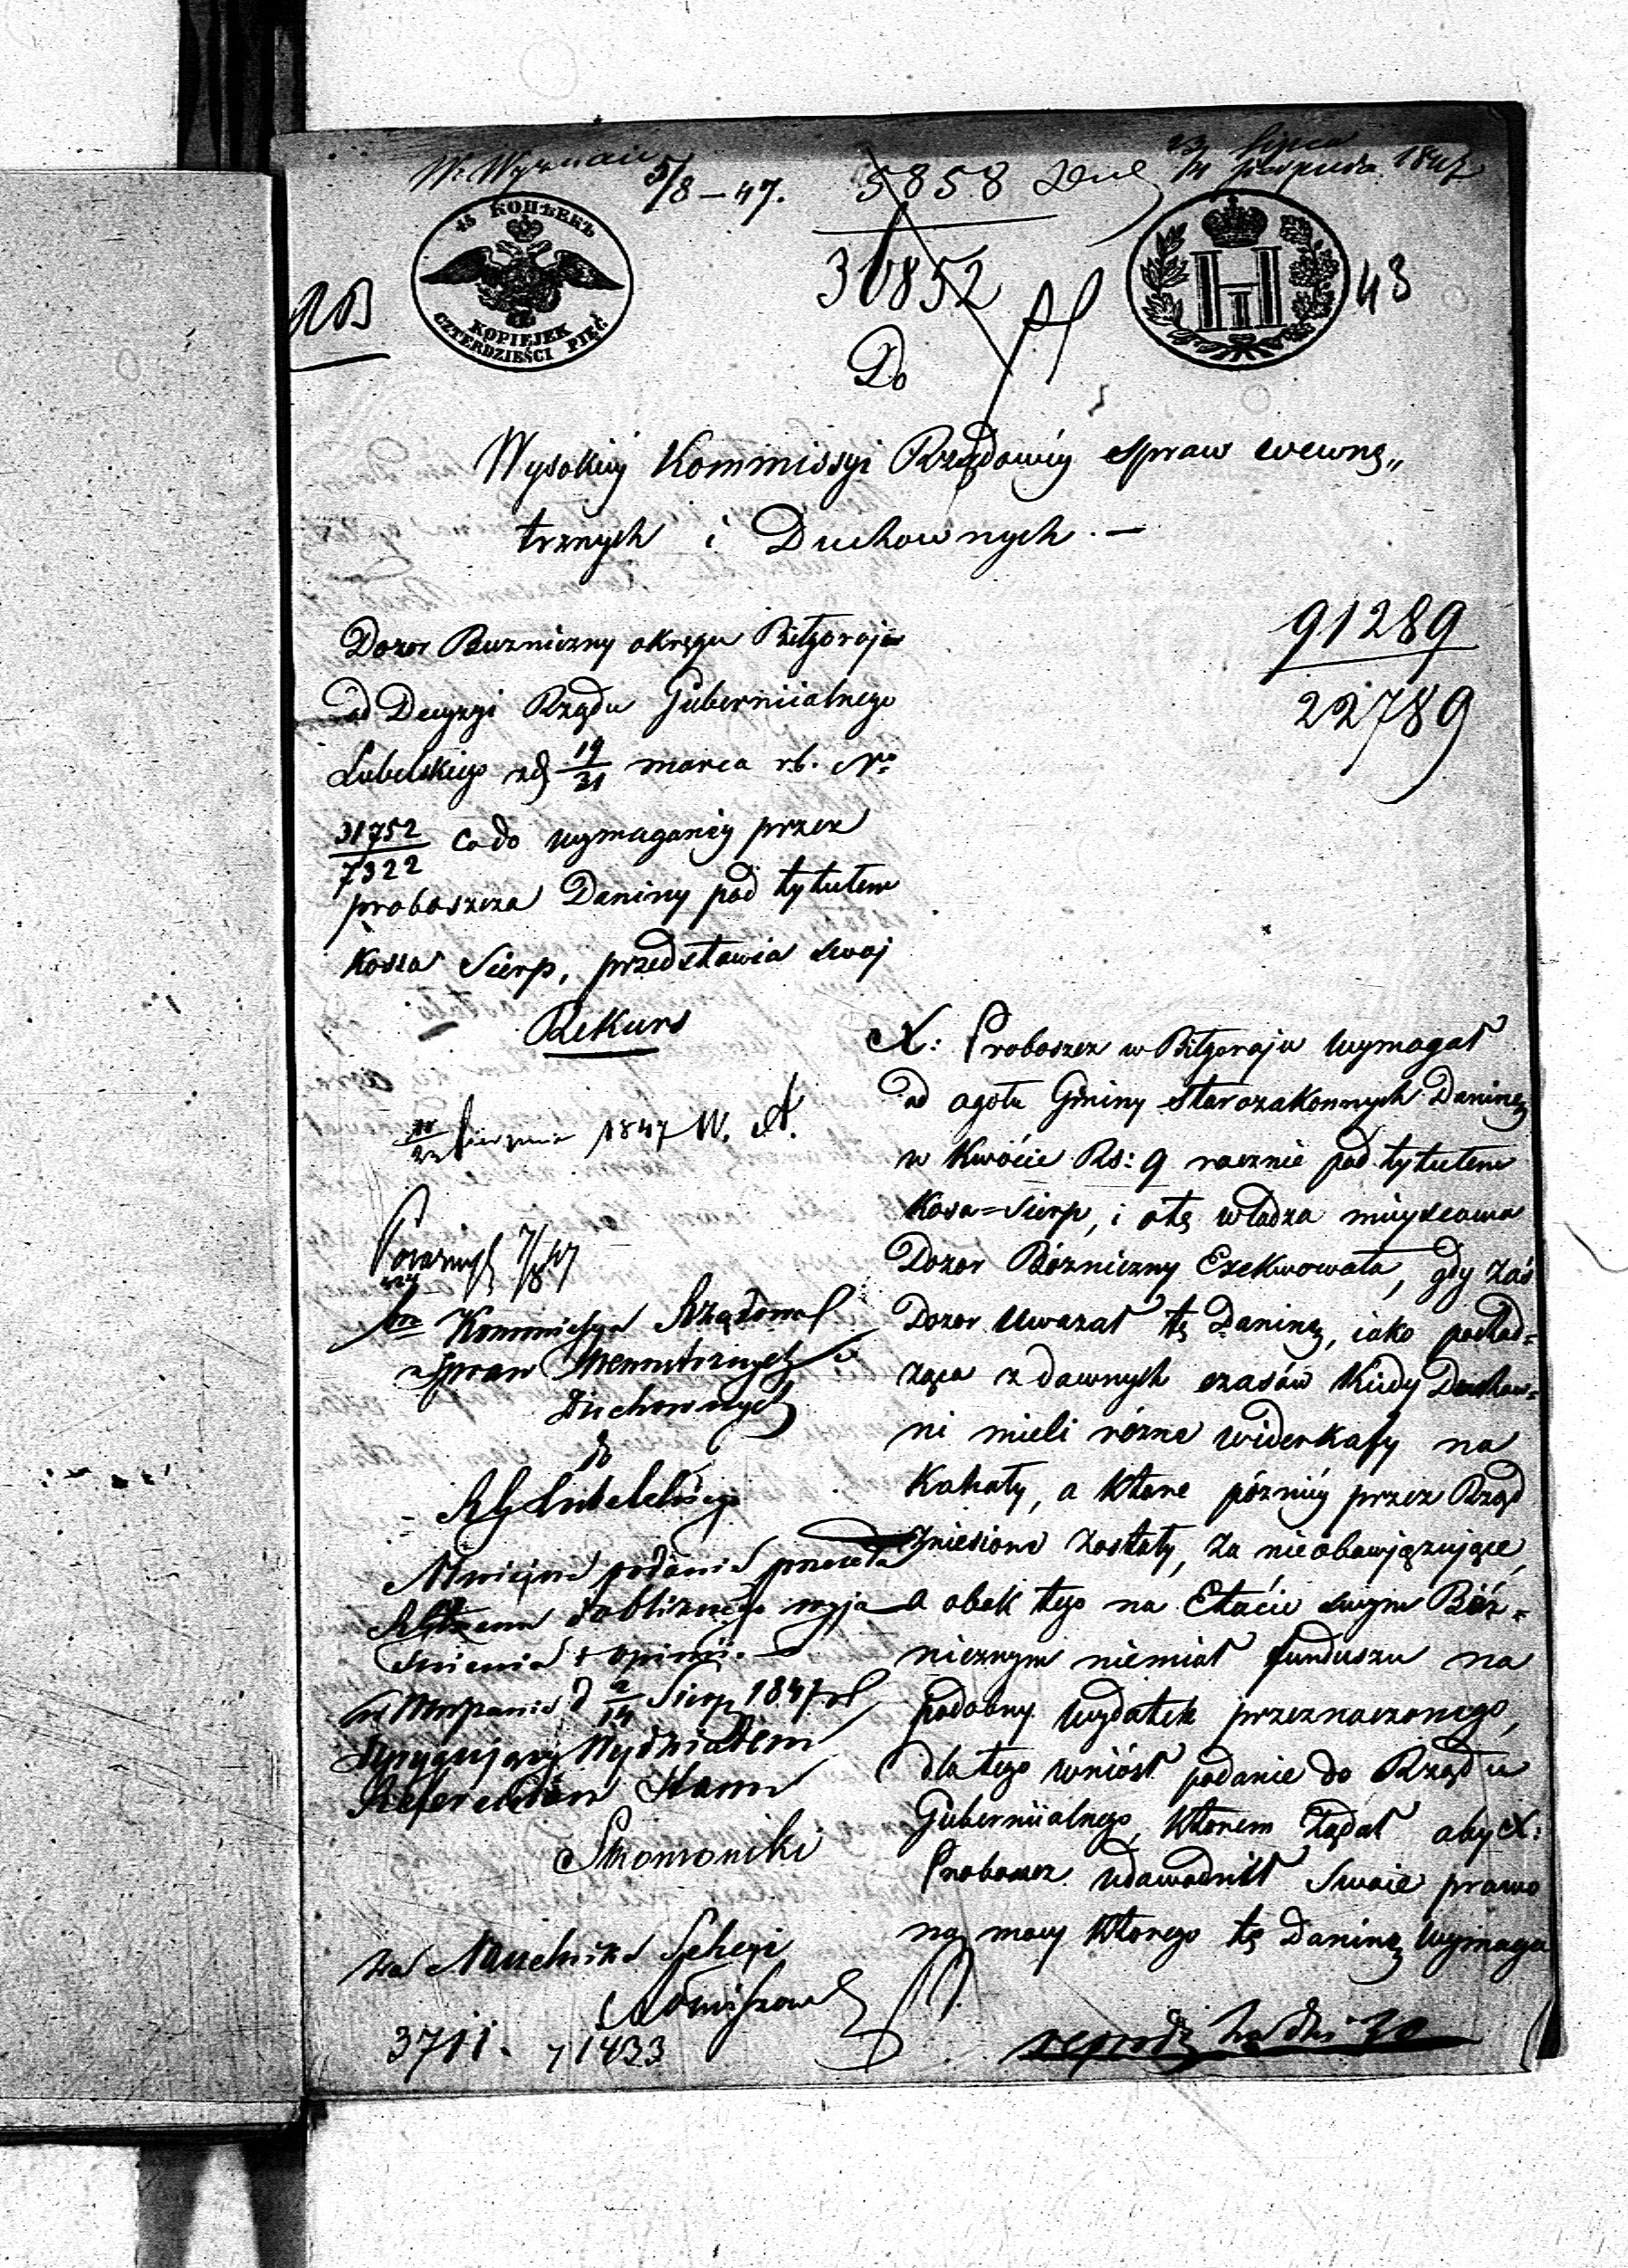 W. Wyznań
5/8 – 47.
5858
23 Lipca
/4 Sierpnia 1847
45 КОПѢЕКЪ
KOPIEJEK
CZTERDZIEŚCI PIĘĆ
43
Do
Wysokiéj Kommissyi Rządowéj Spraw Wewnę„
trznych i Duchownych. —
91289
22789
Dozor Buzniczny okręgu Biłgoraja
od Decyzyi Rządu Gubernialnego
Lubelskiego z d 19/31 marca r.b. No
31752/7322 co do wymaganéj przez
proboszcza Daniny pod tytułem
Kossa Sierp, przedstawia swoj
Rekurs
Sierpnia 1847 W. A.
7/8 47
Kommissya Rządowa
Spraw Wewnętrznych i
Duchownych
do
RG Lubelskiego
Niniejsze podanie przesła
dobliższego wyja
śnienia i opinii. —
w Warszawie d 2/14 Sierp 1847 r
Dyrygujący Wydziałem
Referendarz Stanu
Za Naczelnika Sekcyi
3711. 71433
X: Proboszcz w Biłgoraju wymagał
od ogołu Gminy Starozakonnych Daninę
w kwocie Rs: 9 rocznie pod tytułem
Kosa=Sierp, i otę władza mieyscowa
Dozor Bózniczny Exekwowała, gdy zaś
Dozor uwazał tę Daninę, iako pochod=
ząca z dawnych czasów kiedy Duchow=
ni mieli rózne widerkafy na
Kahały, a ktore pózniéy przez Rząd
zniesione zostały, za nieobowjązujące,
a obok tego na Etacie swym Bóz=
nicznym niemiał funduszu na
podobny wydatek przeznaczonego,
dla tego wniósł podanie do Rządu
Gubernialnego, ktorem żądał aby X:
Proboszcz udowodnił Swoie prawo
na mocy ktorego tę Daninę wymaga